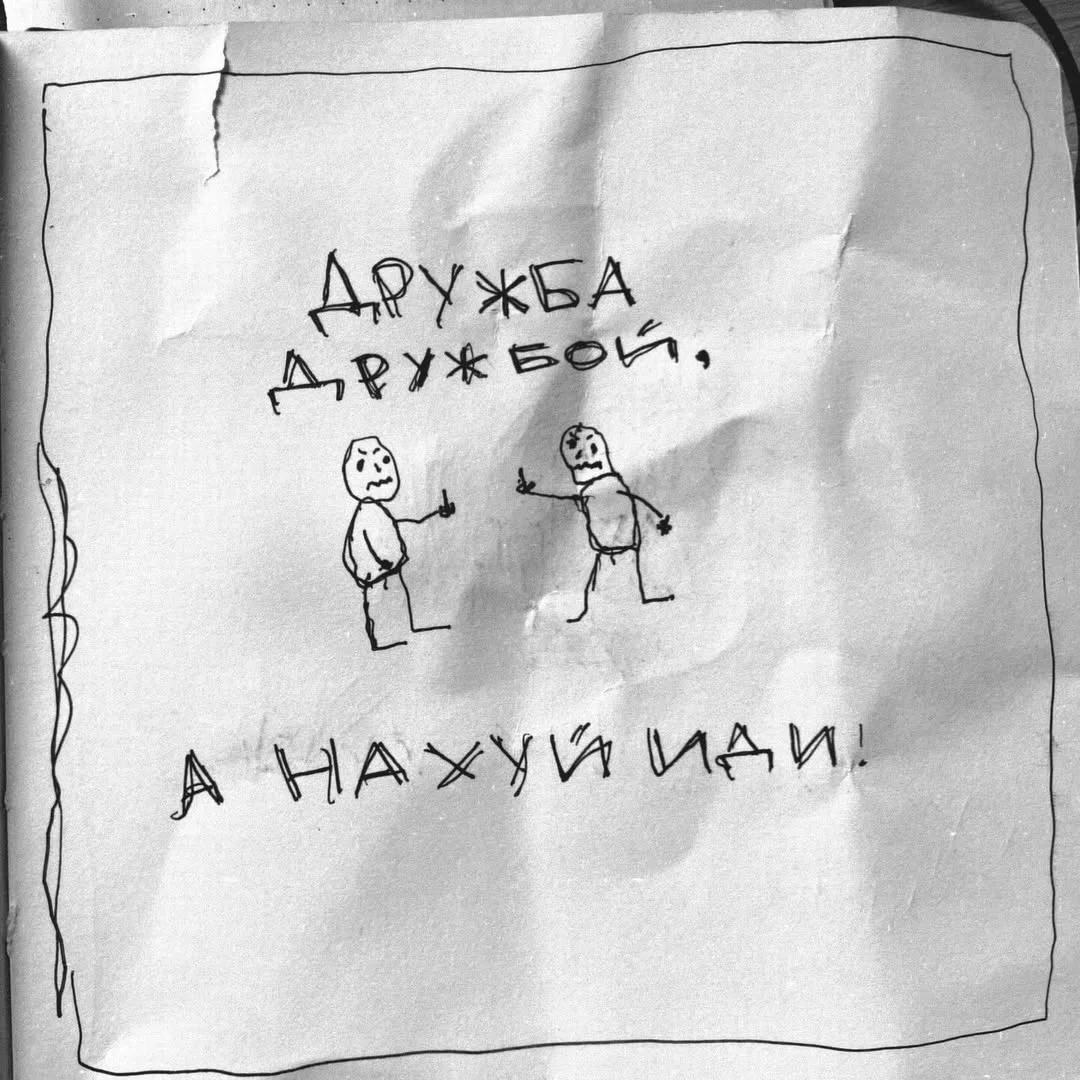 ДРУЖБА
ДРУЖБОЙ,
А НАХУЙ ИДИ!